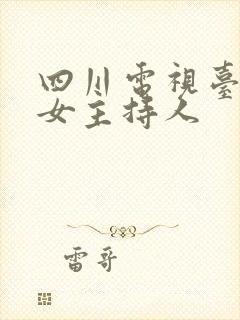 四川電視臺
女主持人
雷哥